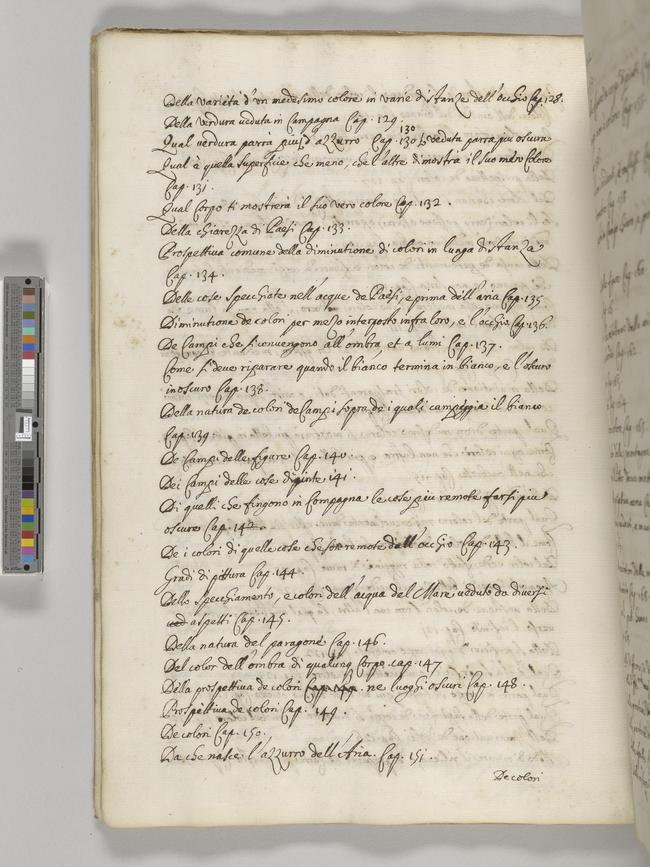 Della varietà d'un medesimo colore in varie distanze dell'occhio Cap. 128.
Della verdura veduta in Campagna Cap. 129
Qual verdura parrà più d'azzurro Cap. 130 veduta parra più oscura
130
Qual è quella superficie che meno, che l'altre dimostra il suo vero Colore
Cap. 131.
Qual Corpo ti mostrerà il suo vero colore Cap. 132.
Della chiarezza di Paesi Cap. 133.
Prospettiva comune della diminutione di colori in lunga distanza
Cap. 134.
Delle cose specchiate nell'acque de Paesi, e prima dell'aria Cap. 135.
Diminutione de colori per mezo interposto infra loro, e l'occhio Cap. 136.
De Campi che si convengono all'ombra, et a lumi Cap. 137.
Come si deve riparare quando il bianco termina in bianco, e l'oscuro
in oscuro Cap. 138.
Della natura de colori de Campi sopra de i quali campeggia il bianco
Cap. 139.
De Campi delle figure Cap. 140.
Dei Campi delle cose dipinte 141.
Di quelli che fingono in Campagna le cose più remote farsi più
oscure Cap. 142.
De i colori di quelle cose che son remote dall'occhio Cap. 143.
Gradi di pittura Cap. 144.
Dello specchiamento, e colori dell'acqua del Mare veduto da diversi
ved aspetti Cap. 145.
Della natura del paragone Cap. 146.
Del color dell'ombra di qualunq Corpo cap. 147
Della prospettiva de colori Cap. 149. ne luoghi oscuri Cap. 148.
Prospettiva de colori Cap. 149.
De colori Cap. 150.
Da che nasce l'azzurro dell'Aria. Cap. 151.
De colori